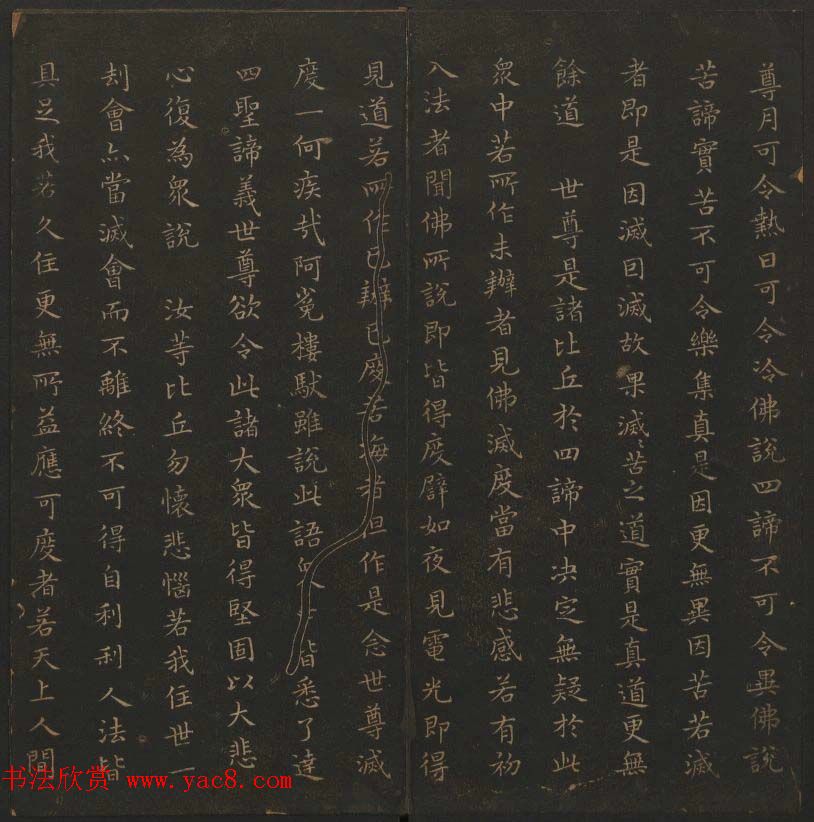 尊月可令熱日可令冷佛說四諦不可令異佛說
苦諦實苦不可令樂集真是因更無異因苦若滅
者即是因滅因滅故果滅滅苦之道實是真道更無
餘道　世尊是諸比丘於四諦中決定無疑於此
眾中若所作未辦者見佛滅度當有悲感若有初
入法者聞佛所說即皆得度譬如夜見電光即得
見道若所作已辦已度苦海者但作是念世尊滅
度一何疾哉阿㝹樓馱雖說此語眾皆悉了達
四聖諦義世尊欲令此諸大眾皆得堅固以大悲
心復為眾說　汝等比丘勿懷悲惱若我住世一
刼會亦當滅會而不離終不可得自利利人法皆
具足我若久住更無所益應可度者若天上人間
书法欣赏 www.yac8.com